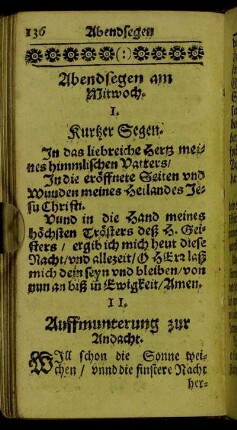 136 Abendsegen
Abendsegen am
Mitwoch.
I.
Kurtzer Segen.
In das liebreiche Hertz mei-
nes himmlischen Vatters/
In die eröffnete Seiten vnd
Wunden meines Heilandes Je-
su Christi.
Vund in die Hand meines
höchsten Trösters deß H. Gei-
sters / ergib ich mich heut diese
Nacht/vnd allezeit/O HErr laß
mich dein seyn vnd bleiben/von
nun an biß in Ewigkeit/Amen.
II.
Auffmunterung zur
Andacht.
WIll schon die Sonne wei-
chen / vnnd die finstere Nacht
her-